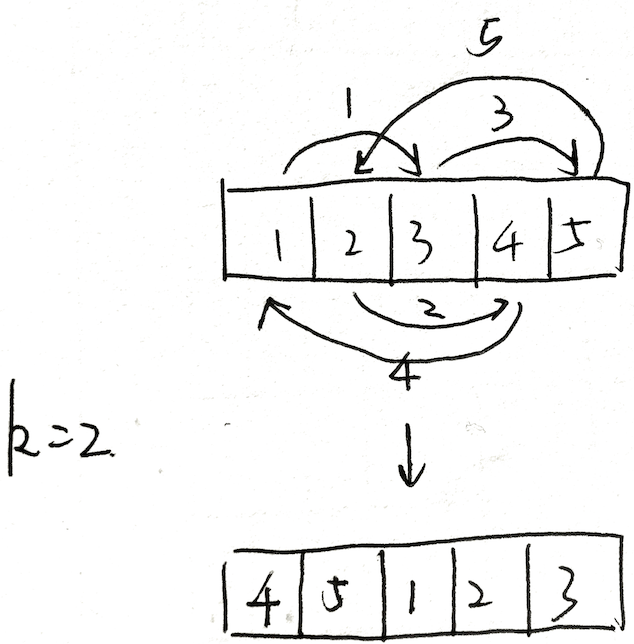 5
1 3
1 2 3 4 5
2
4
k=2.
4 5 1 2 3